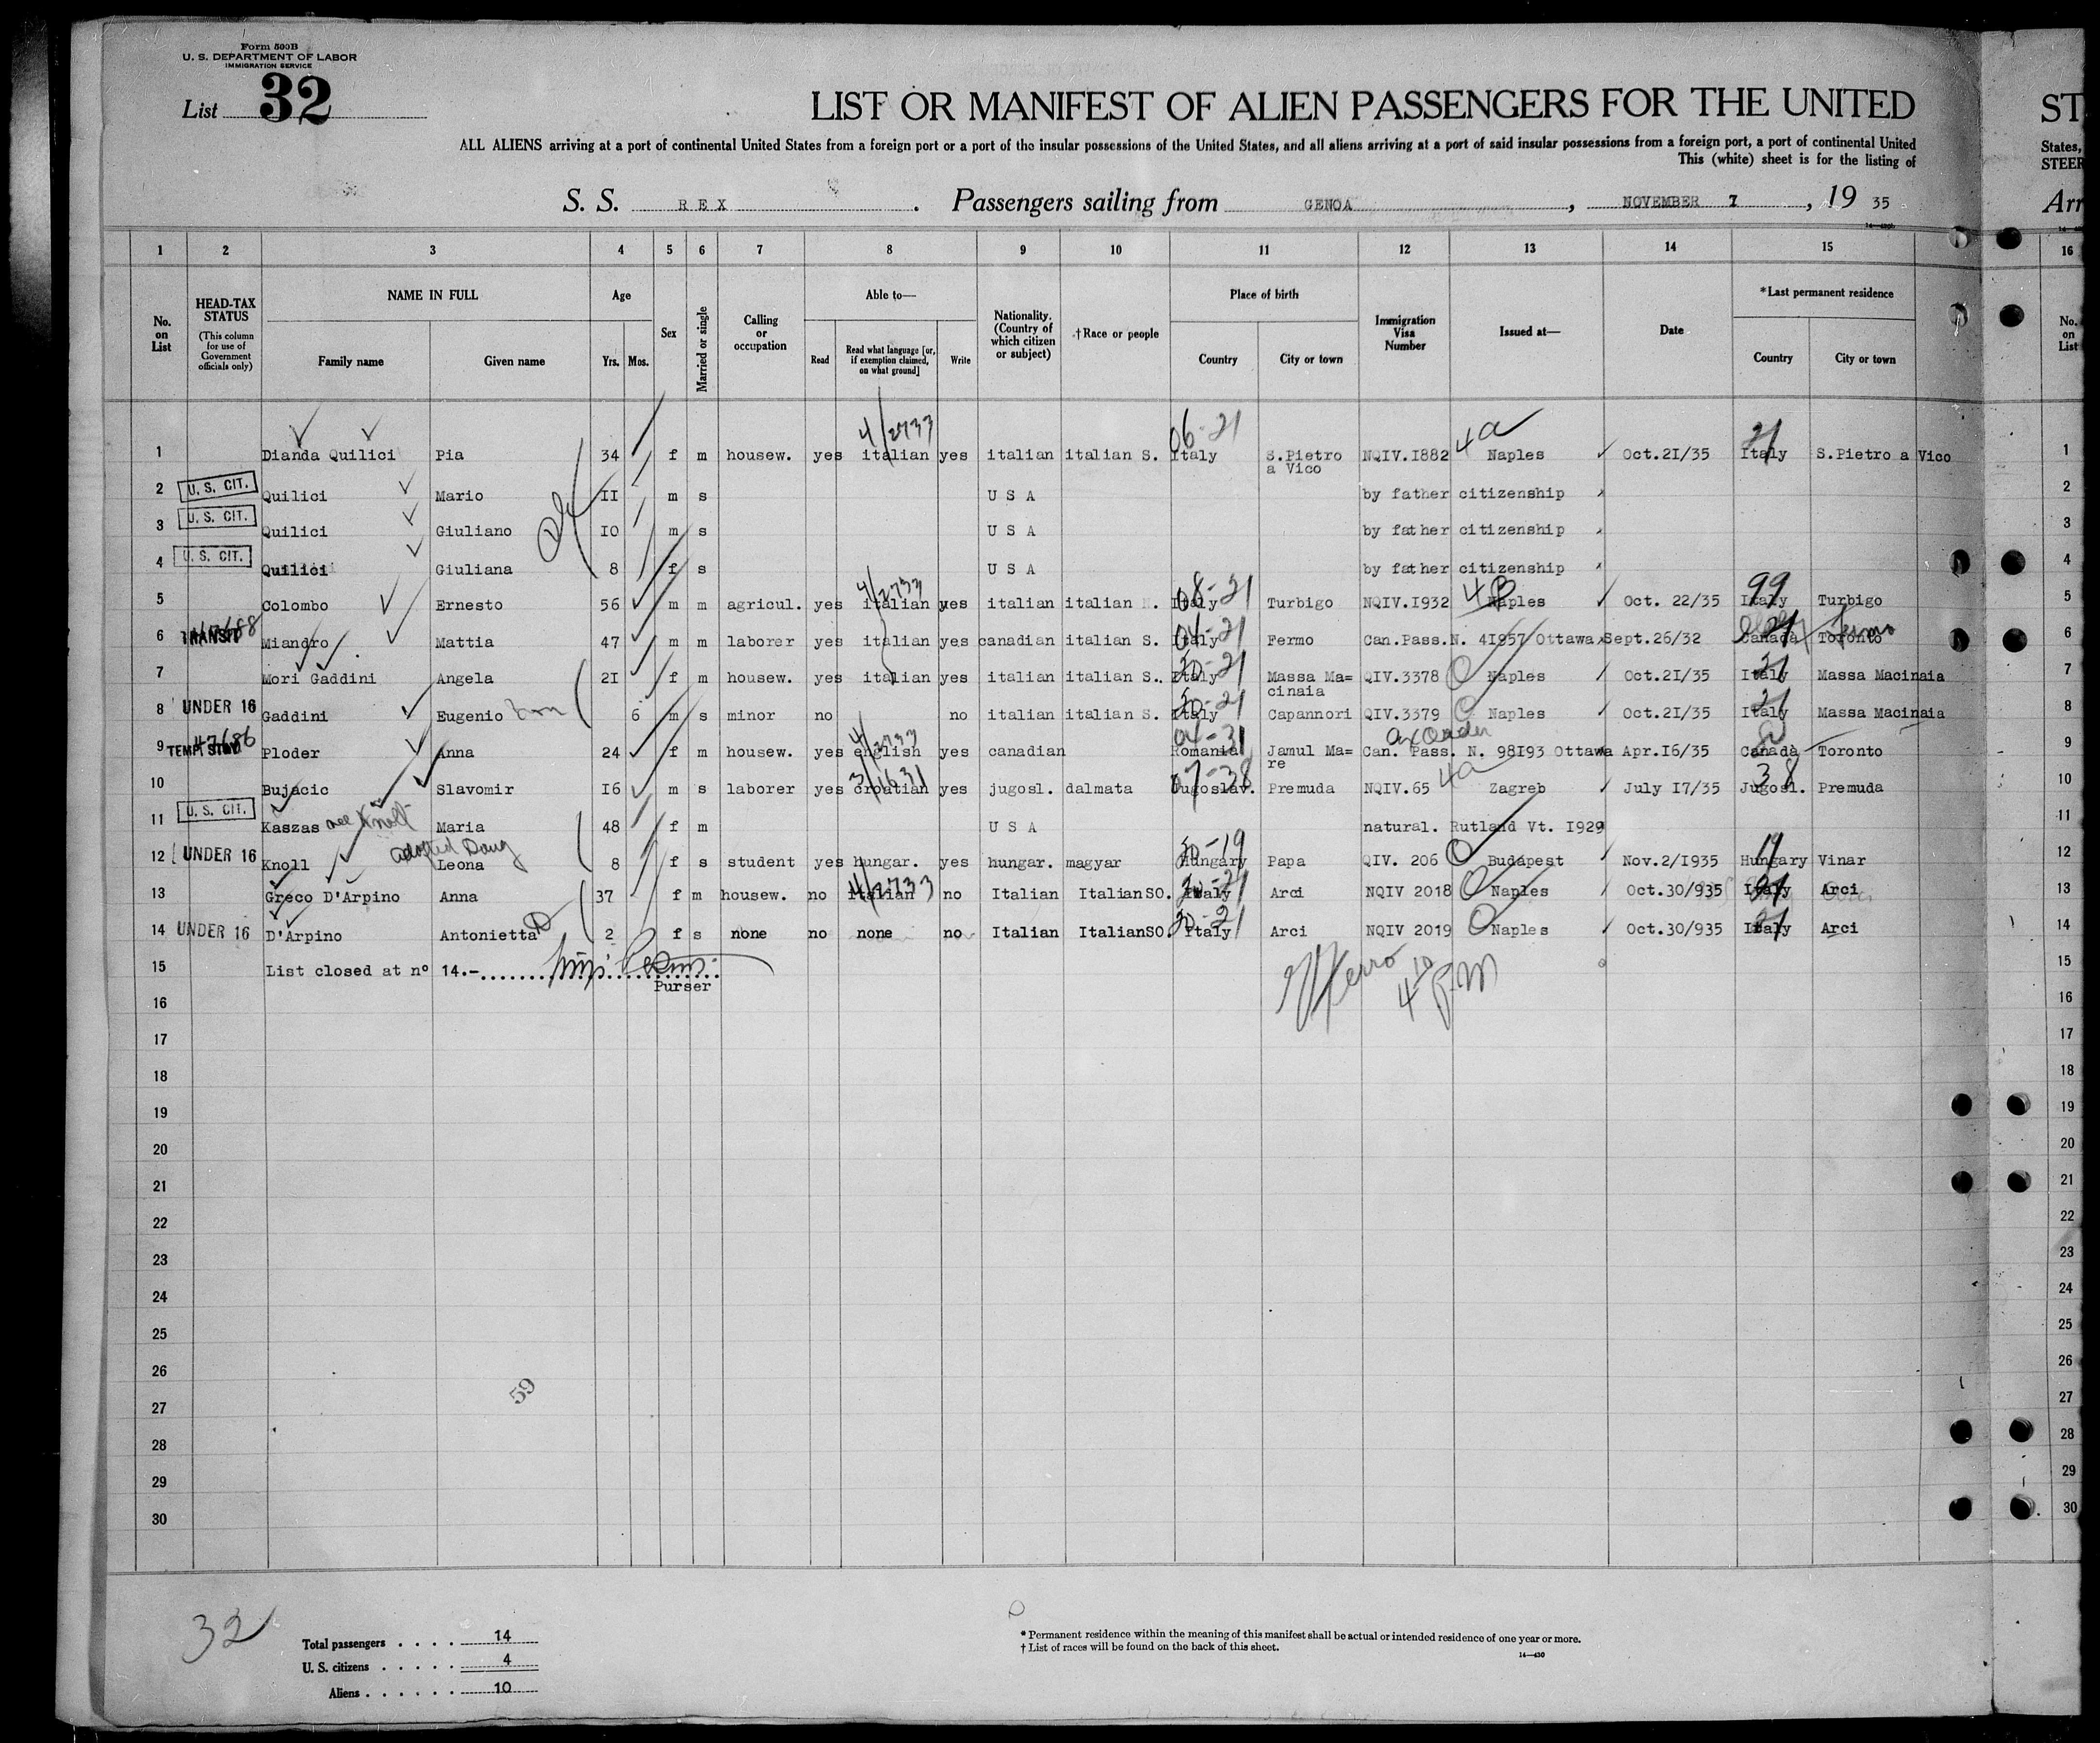 Form 500B
U. S. DEPARTMENT OF LABOR
IMMIGRATION SERVICE
List 32
LIST OR MANIFEST OF ALIEN PASSENGERS FOR THE UNITED
ST
ALL ALIENS arriving at a port of continental United States from a foreign port or a port of the insular possessions of the United States, and all aliens arriving at a port of said insular possessions from a foreign port, a port of continental United
States,
This (white) sheet is for the listing of
STEER
S. S. REX. Passengers sailing from GENOA, NOVEMBER 7, 19 35
Arr
14—430
1 2 3 4 5 6 7 8 9 10 11 12 13 14 15 16
No. on List
HEAD-TAX STATUS
(This column for use of Government officials only)
NAME IN FULL
Family name Given name
Age
Yrs. Mos.
Sex
Married or single
Calling or occupation
Able to—
Read
Read what language [or, if exemption claimed, on what ground]
Write
Nationality. (Country of which citizen or subject)
†Race or people
Place of birth
Country City or town
Immigration Visa Number
Issued at—
Date
*Last permanent residence
Country City or town
No. on List
4/2733 06-21 4a 21
1 Dianda Quilici Pia 34 f m housew. yes italian yes italian italian S. Italy S.Pietro a Vico NQIV.I882 Naples Oct.2I/35 Italy S.Pietro a Vico 1
2 U. S. CIT. Quilici Mario II m s U S A by father citizenship 2
3 U. S. CIT. Quilici Giuliano IO m s U S A by father citizenship 3
4 U. S. CIT. Quilici Giuliana 8 f s U S A by father citizenship 4
4/2733 08-21 4B 99
5 Colombo Ernesto 56 m m agricul. yes italian yes italian italian N. Italy Turbigo NQIV.I932 Naples Oct. 22/35 Italy Turbigo 5
04-21 Italy 21 Fermo
6 TRANSIT Miandro Mattia 47 m m laborer yes italian yes canadian italian S. Italy Fermo Can.Pass.N. 4I957 Ottawa Sept.26/32 Canada Toronto 6
30-21 21
7 Mori Gaddini Angela 2I f m housew. yes italian yes italian italian S. Italy Massa Ma=cinaia QIV.3378 Naples Oct.2I/35 Italy Massa Macinaia 7
30-21 21
8 UNDER 16 Gaddini Eugenio 6 m s minor no no italian italian S. Italy Capannori QIV.3379 Naples Oct.2I/35 Italy Massa Macinaia 8
4/2733 04-31
9 TEMP. STAY Ploder Anna 24 f m housew. yes english yes canadian Romania Jamul Ma=re Can. Pass. N. 98I93 Ottawa Apr.I6/35 Canada Toronto 9
3/1631 07-38 4a 38
10 Bujacic Slavomir I6 m s laborer yes croatian yes jugosl. dalmata Jugoslav. Premuda NQIV.65 Zagreb July I7/35 Jugosl. Premuda 10
11 U. S. CIT. Kaszas nee Knoll Maria 48 f m U S A natural. Rutland Vt. I929 11
adopted Daug 30-19 19
12 UNDER 16 Knoll Leona 8 f s student yes hungar. yes hungar. magyar Hungary Papa QIV. 206 Budapest Nov.2/I935 Hungary Vinar 12
4/2733 30-21 21
13 Greco D'Arpino Anna 37 f m housew. no Italian no Italian ItalianSO. Italy Arci NQIV 2018 Naples Oct.30/935 Italy Arci 13
30-21 21
14 UNDER 16 D'Arpino Antonietta 2 f s none no none no Italian ItalianSO. Italy Arci NQIV 2019 Naples Oct.30/935 Italy Arci 14
15 List closed at n° 14.- 15
Purser
4 10 P.M
16 16
17 17
18 18
19 19
20 20
21 21
22 22
23 23
24 24
25 25
26 26
27 27
28 28
29 29
30 30
59
32
Total passengers .... 14
U. S. citizens ..... 4
Aliens ...... 10
* Permanent residence within the meaning of this manifest shall be actual or intended residence of one year or more.
† List of races will be found on the back of this sheet.
14—430